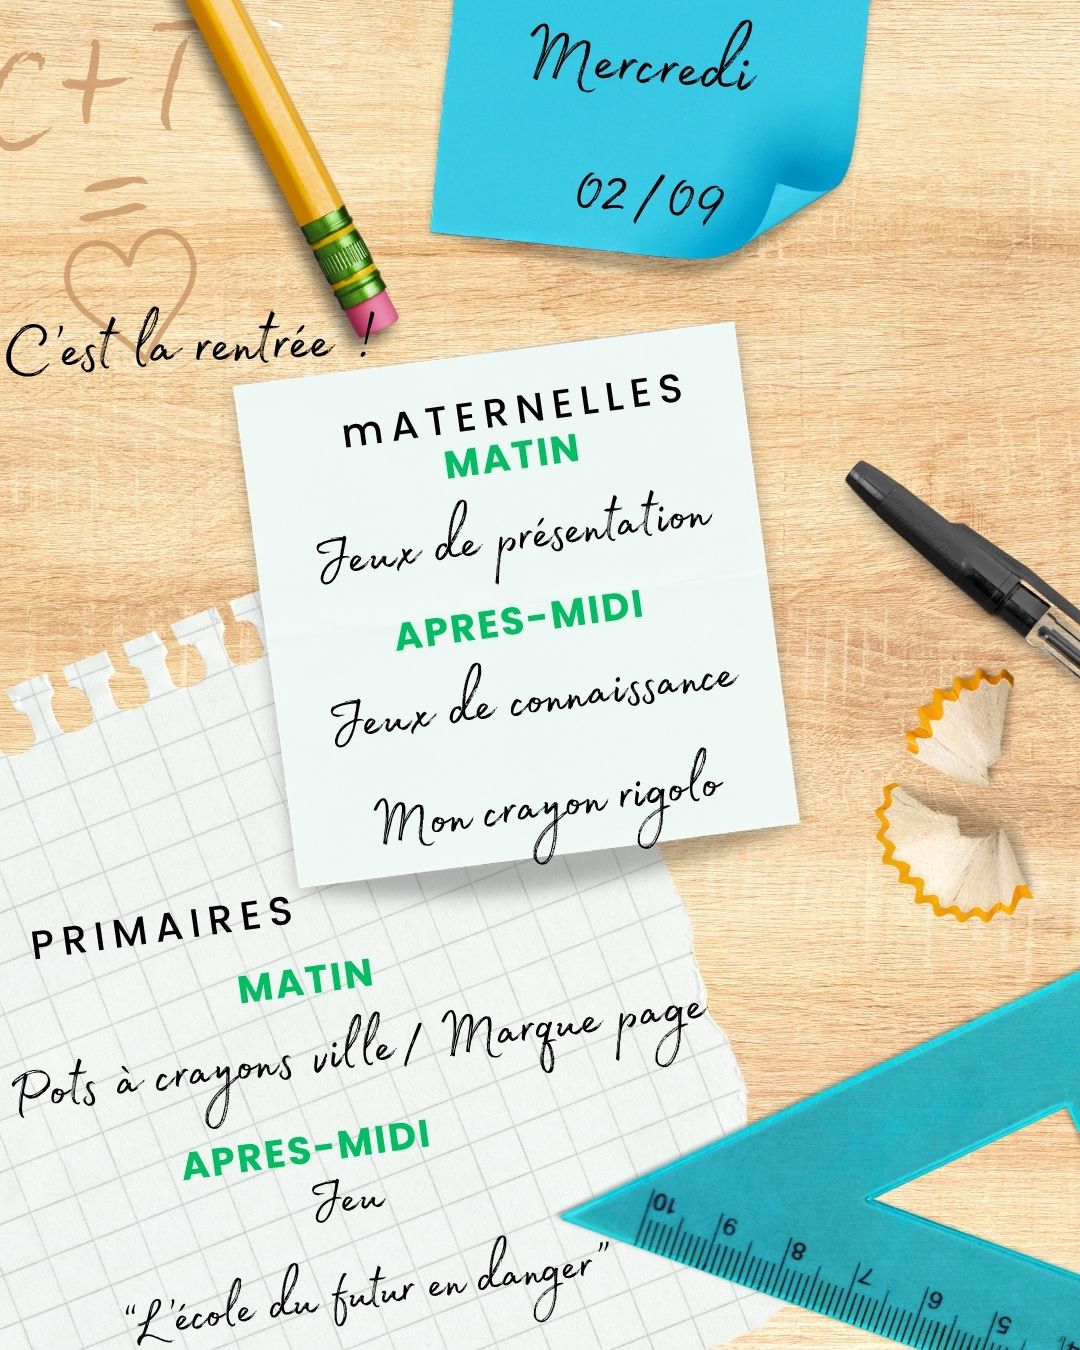 C+T
=
Mercredi
02/09
C'est la rentrée !
mATERNELLES
MATIN
Jeux de présentation
APRES-MIDI
Jeux de connaissance
Mon crayon rigolo
PRIMAIRES
MATIN
Pots à crayons ville/ Marque page
APRES-MIDI
Jeu
“L'école du futur en danger”
10
9
8
7
6
5
4